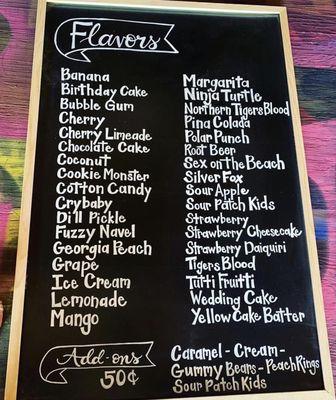 Flavors
Banana
Birthday Cake
Bubble Gum
Cherry
Cherry Limeade
Chocolate Cake
Coconut
Cookie Monster
Cotton Candy
Crybaby
Dill Pickle
Fuzzy Navel
Georgia Peach
Grape
Ice Cream
Lemonade
Mango
Margarita
Ninja Turtle
Northern Tigers Blood
Pina Colada
Polar Punch
Root Beer
Sex on the Beach
Silver Fox
Sour Apple
Sour Patch Kids
Strawberry
Strawberry Cheesecake
Strawberry Daiquiri
Tigers Blood
Tutti Fruitti
Wedding Cake
Yellow Cake Batter
Add-ons
50¢
Caramel - Cream -
Gummy Bears - Peach Rings
Sour Patch Kids